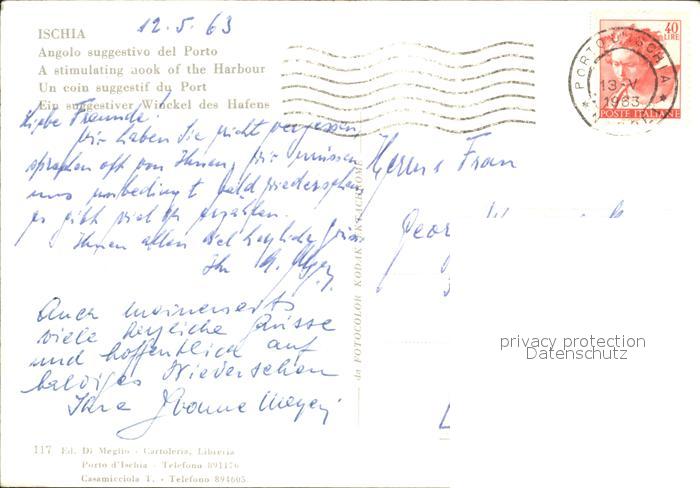 12.5.63
ISCHIA
Angolo suggestivo del Porto
A stimulating nook of the Harbour
Un coin suggestif du Port
Ein suggestiver Winckel des Hafens
40
LIRE
POSTE ITALIANE
PORTO D'ISCHIA
13-V
1963
Liebe Freunde!
Wir haben Sie nicht vergessen,
sprechen oft von Ihnen, wir müssen
uns unbedingt bald wiedersehen,
es gibt viel zu erzählen.
Ihnen allen viel herzliche Grüsse
Ihr
Auch meinerseits
viele herzliche Grüsse
und hoffentlich auf
baldiges Wiedersehen
Ihre Yvonne Meyer
Herrn u Frau
Geor
privacy protection
Datenschutz
da FOTOCOLOR KODAK EKTACHROME
117 Ed. Di Meglio - Cartoleria, Libreria
Porto d'Ischia - Telefono 891176
Casamicciola T. - Telefono 894605